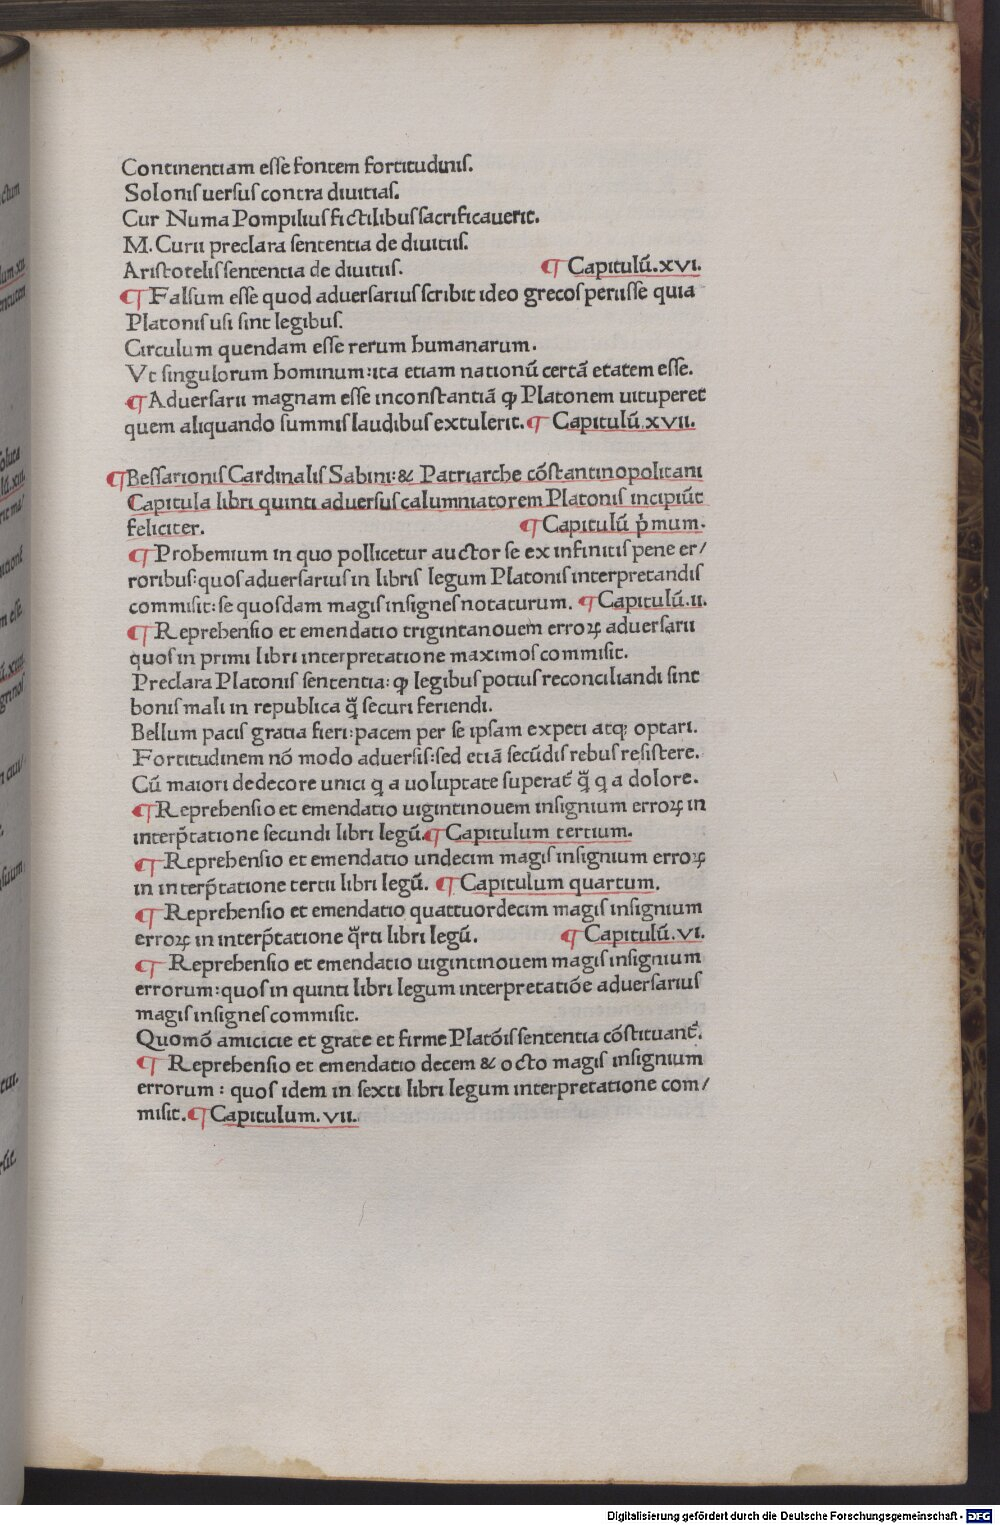 Continentiam esse fontem fortitudinis.
Solonis uersus contra diuitias.
Cur Numa Pompilius fictilibus sacrificauerit.
M. Curii preclara sententia de diuitiis.
Aristotelis sententia de diuitiis. ¶ Capitulũ.xvi.
¶ Falsum esse quod aduersarius scribit ideo grecos periisse quia
Platonis usi sint legibus.
Circulum quendam esse rerum humanarum.
Vt singulorum hominum:ita etiam nationũ certã etatem esse.
¶ Aduersarii magnam esse inconstantiã ꝙ Platonem uituperet
quem aliquando summis laudibus extulerit. ¶ Capitulũ.xvii.
¶ Bessarionis Cardinalis Sabini:& Patriarche cõstantinopolitani
Capitula libri quinti aduersus calumniatorem Platonis incipiũt
feliciter. ¶ Capitulũ p̍mum.
¶ Prohemium in quo pollicetur auctor se ex infinitis pene er/
roribus:quos aduersarius in libris legum Platonis interpretandis
commisit:se quosdam magis insignes notaturum. ¶ Capitulũ.ii.
¶ Reprehensio et emendatio trigintanouem erroꝝ aduersarii
quos in primi libri interpretatione maximos commisit.
Preclara Platonis sententia: ꝙ legibus potius reconciliandi sint
bonis mali in republica q̃ securi feriendi.
Bellum pacis gratia fieri:pacem per se ipsam expeti atq; optari.
Fortitudinem nõ modo aduersis:sed etiã secũdis rebus resistere.
Cũ maiori dedecore uinci q a uoluptate superat̃ q̃ q a dolore.
¶ Reprehensio et emendatio uigintinouem insignium erroꝝ in
interp̃tatione secundi libri legũ. ¶ Capitulum tertium.
¶ Reprehensio et emendatio undecim magis insignium erroꝝ
in interp̃tatione tertii libri legũ. ¶ Capitulum quartum.
¶ Reprehensio et emendatio quattuordecim magis insignium
erroꝝ in interp̃tatione q̃rti libri legũ. ¶ Capitulũ.vi.
¶ Reprehensio et emendatio uigintinouem magis insignium
errorum:quos in quinti libri legum interpretatiõe aduersarius
magis insignes commisit.
Quomõ amicicie et grate et firme Platõis sententia cõstituant̃.
¶ Reprehensio et emendatio decem & octo magis insignium
errorum : quos idem in sexti libri legum interpretatione com/
misit. ¶ Capitulum.vii.
Digitalisierung gefördert durch die Deutsche Forschungsgemeinschaft - DFG